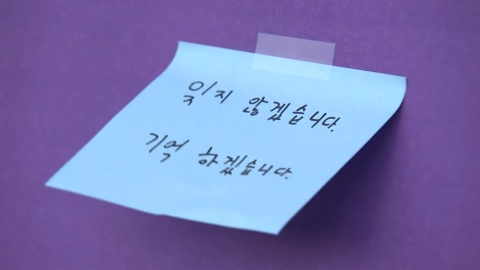 잊지 않겠습니다.
기억 하겠습니다.